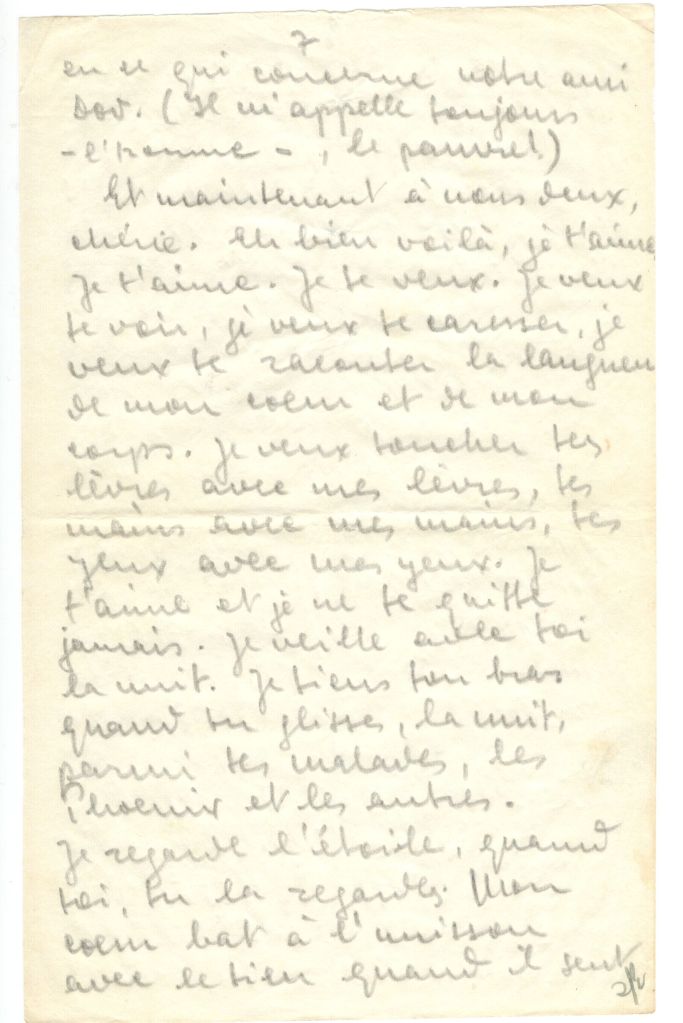 7
en ce qui concerne notre ami
Dov. (Il m'appelle toujours
- l'homme - , le pauvre!)
Et maintenant à nous deux,
chérie. Eh bien voilà, je t'aime
Je t'aime. Je te veux. Je veux
te voir, je veux te caresser, je
veux te raconter la langueur
de mon coeur et de mon
corps. Je veux toucher tes
lèvres avec mes lèvres, tes
mains avec mes mains, tes
yeux avec mes yeux. Je
t'aime et je ne te quitte
jamais. Je veille avec toi
la nuit. Je tiens ton bras
quand tu glisses, la nuit,
parmi tes malades, les
Phoenix et les autres.
Je regarde l'étoile, quand
toi, tu la regardes. Mon
coeur bat à l'unisson
avec le tien quand il sent